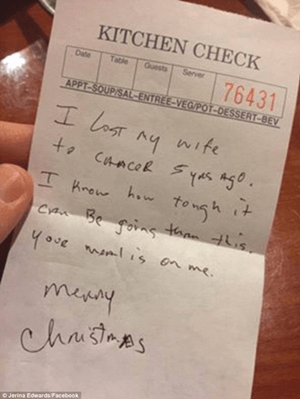 KITCHEN CHECK
Date Table Guests Server
76431
APPT-SOUP/SAL-ENTREE-VEG/POT-DESSERT-BEV
I Lost my wife
to CANCOR 5 yrs Ago.
I know how tough it
can Be going then this.
your meal is on me.
Merry
Christmas
© Jerina Edwards/Facebook